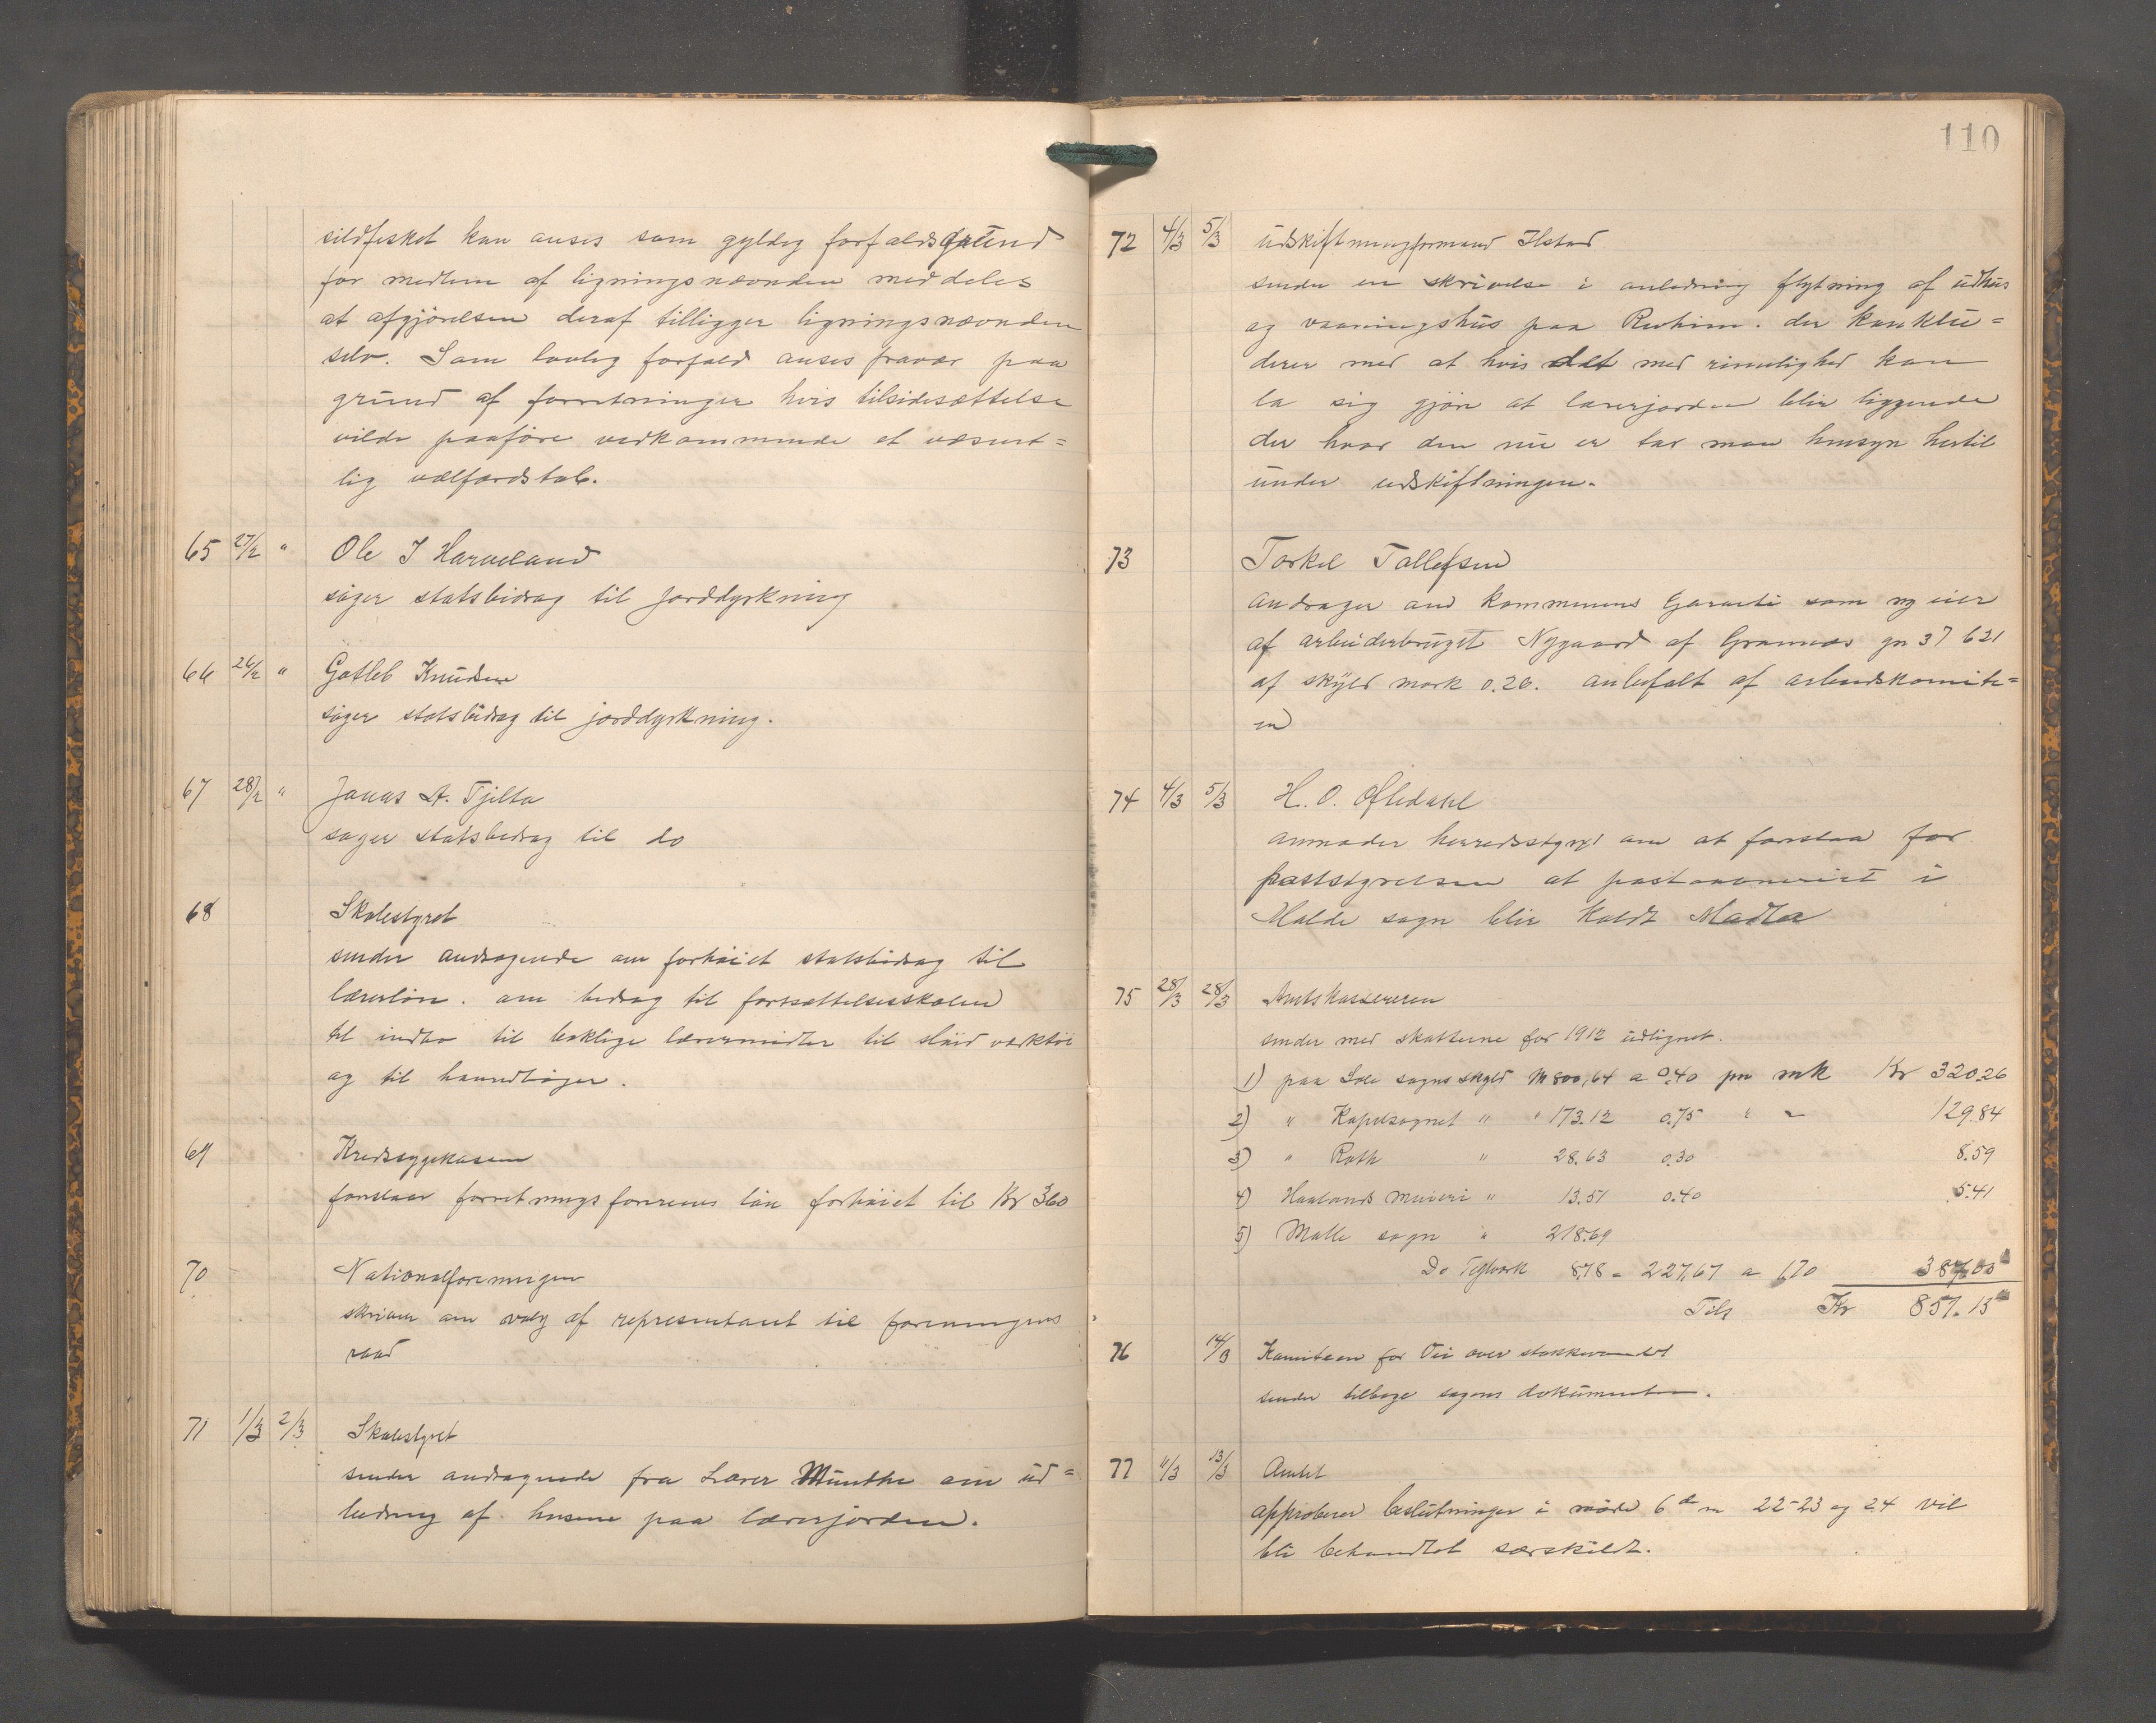 sildfisket kan anses som gyldig forfaldsgrund
for medlem af ligningsnævnden meddeles
at afgjörelsen deraf tilligger ligningsnævnden
selv. Som lovlig forfald anses fravær paa
grund af forretninger hvis tilsidesættelse
vilde paaföre vedkommende et væsent=
lig velfærdstab.
65 27/2 " Ole J Harveland
söger statsbidrag til jorddyrkning
66 26/2 " Gotleb Knudsen
söger statsbidrag til jorddyrkning.
67 28/2 " Jonas A. Tjelta
søger statsbidrag til do
68 Skolestyret
sender andragende om forhöiet statsbidrag til
lærerlön. om bidrag til fortsættelsesskolen
til til boklige læremidler til slöid værktöi
og til haandböger.
69 Kredssygekassen
foreslaar forretningsförerens lön forhöiet til Kr 360
70 Nationalforeningen
skriver om valg af representant til foreningens
raad
71 1/3 2/3 Skolestyret
sender andragende fra Lærer Munthe om ud=
bedring af husene paa lærerjorden.
110
72 4/3 5/3 Udskiftningsformand Ilstad
sender en skrivelse i anledning flytning af udhus
og vaaningshus paa . der konklu=
derer med at hvis det med rimelighed kan
la sig gjöre at lærerjorden blir liggende
der hvor den nu er tar man hensyn hertil
under udskiftningen.
73 Torkel Tollefsen
andrager om kommunens Garanti som ny eier
af arbeiderbruget Nygaard af Grannes gn 37 b 21
af skyld mark 0.26. anbefalt af arbeidskomite=
en
74 4/3 5/3 H. O. Oftedahl
anmoder herredsstyret om at foreslaa for
poststyrelsen at postaabneriet i
Malde sogn blir kaldt Madla
75 28/3 28/3 Amtskassereren
sender med skatterne for 1912 udlignet.
1) paa Sole sogns skyld M 800,64 a 0.40 pr mk Kr 320.26
2) " Kapelsognet " " 173.12 0.75 " " 129.84
3) " Roth " 28.63 0.30 8.59
4) Haalands meieri " 13.51 0.40 5.41
5) Malle sogn " 218.69
Do Teglværk 8.78 = 227,67 a 1,70 387.05
Tils Kr 851.15
76 14/3 Komiteen for Vei over stokkevandet
sender tilbage sagens dokumenter.
77 11/3 13/3 Amtet
approberer beslutninger i möde 6 de n 22-23 og 24 vil
bli behandlet særskildt.